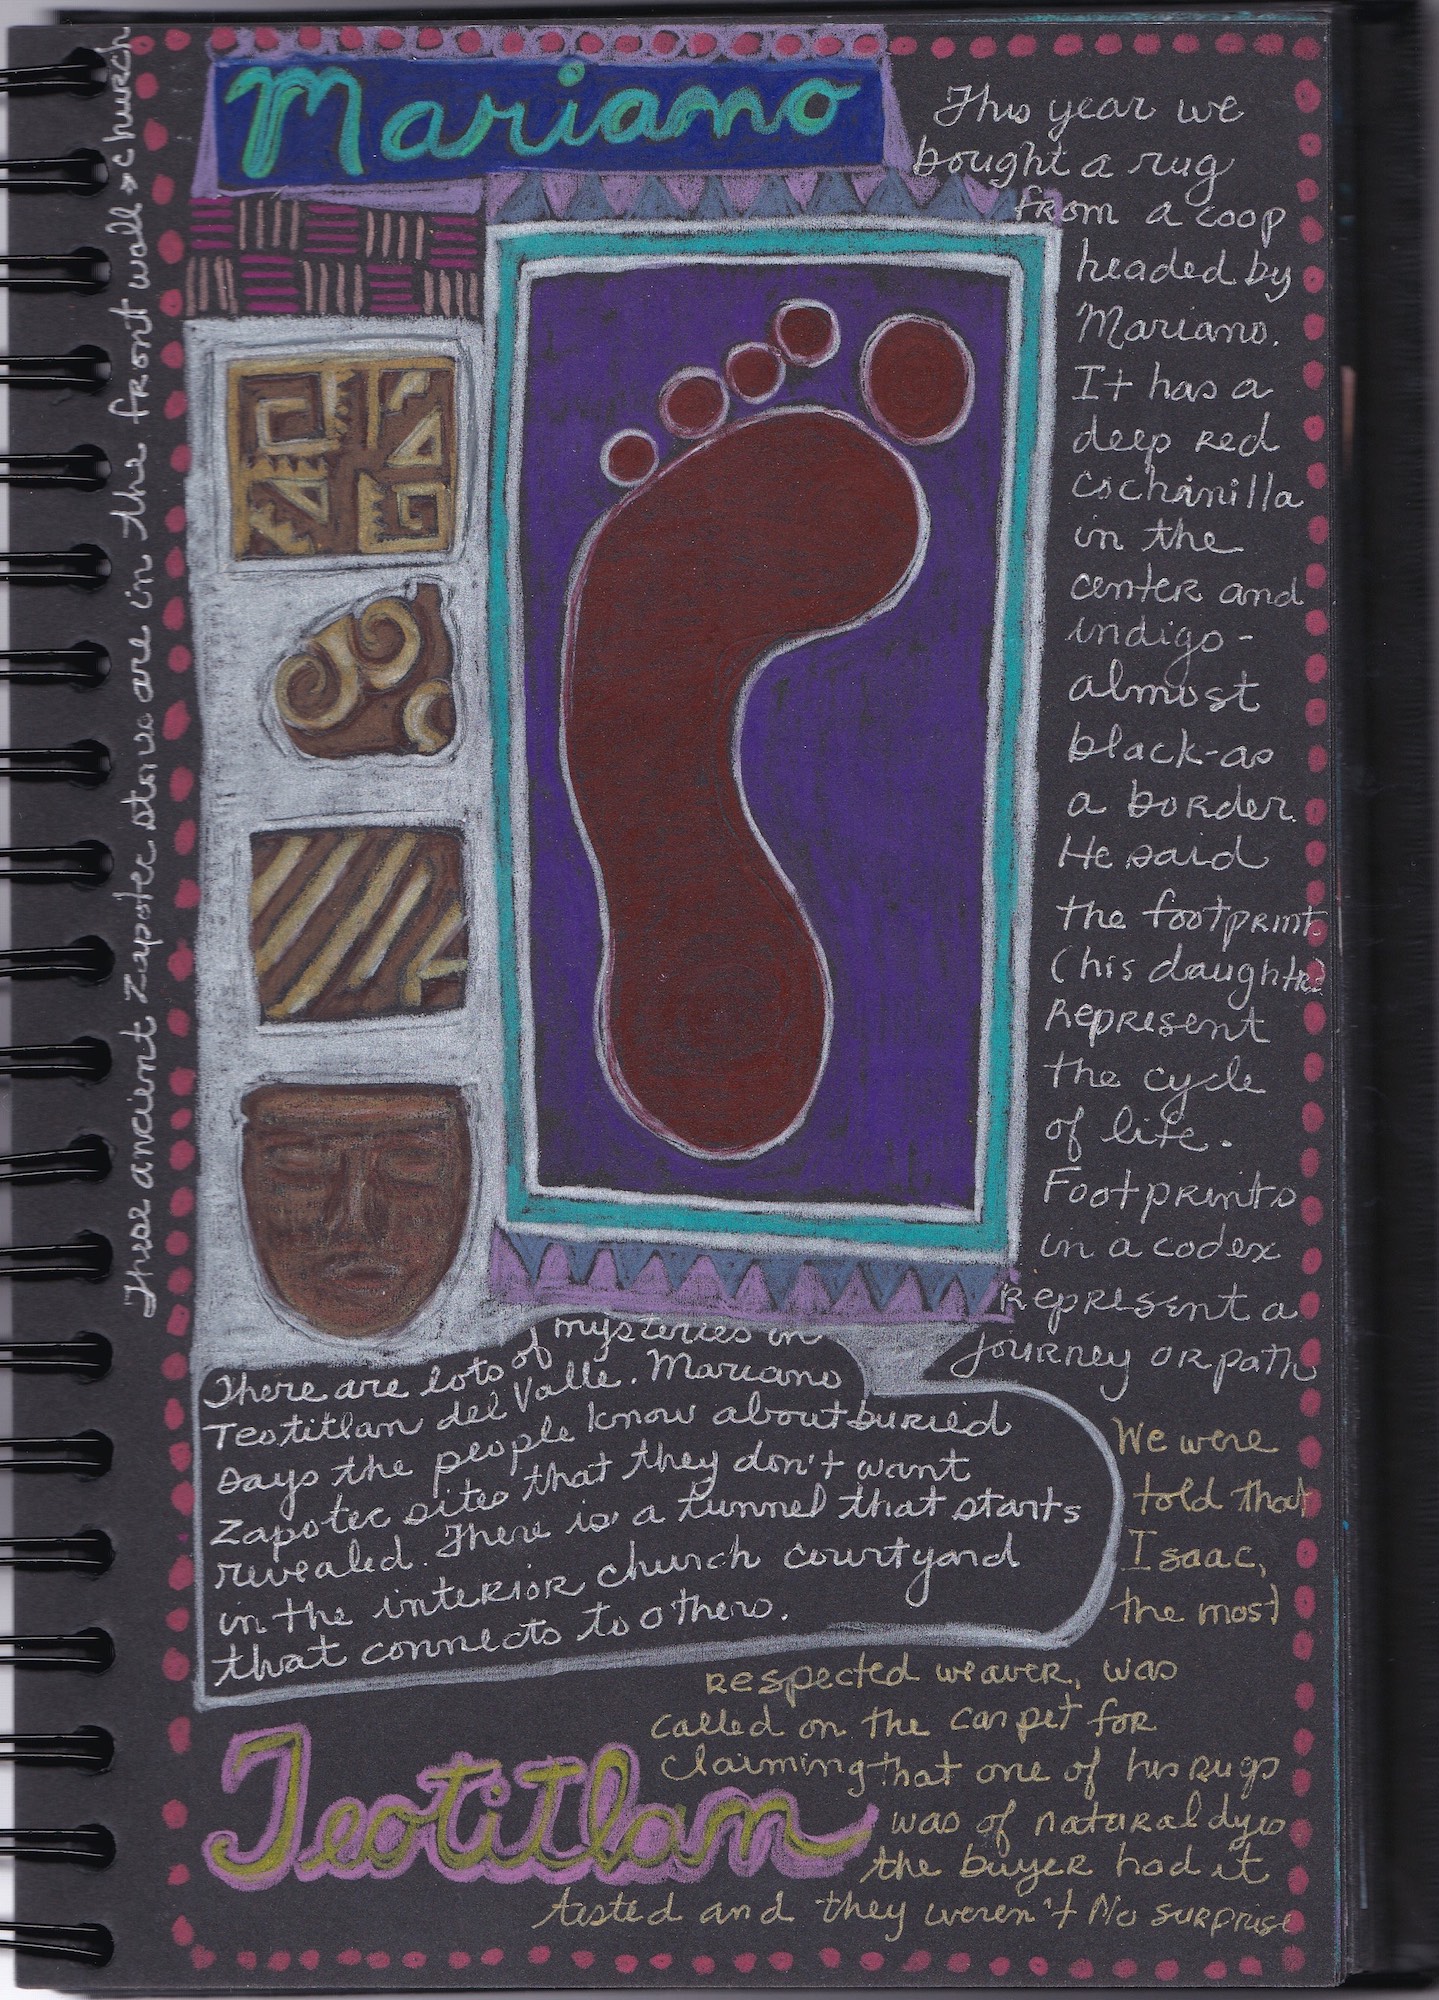 Mariano
This year we
bought a rug
from a coop
headed by
Mariano.
It has a
deep red
cochinilla
in the
center and
indigo-
almost
black-as
a border.
He said
the footprints
(his daughters)
represent
the cycle
of life.
Footprints
in a codex
represent a
journey or path
These ancient Zapotec stone are in the front wall > church
There are lots of mysteries in
Teotitlan del Valle. Mariano
says the people know about buried
Zapotec sites that they don't want
revealed. There is a tunnel that starts
in the interior church courtyard
that connects to others.
We were
told that
Isaac,
the most
respected weaver, was
called on the carpet for
claiming that one of his rugs
was of natural dyes
the buyer had it
tested and they weren't No surprise
Teotitlan